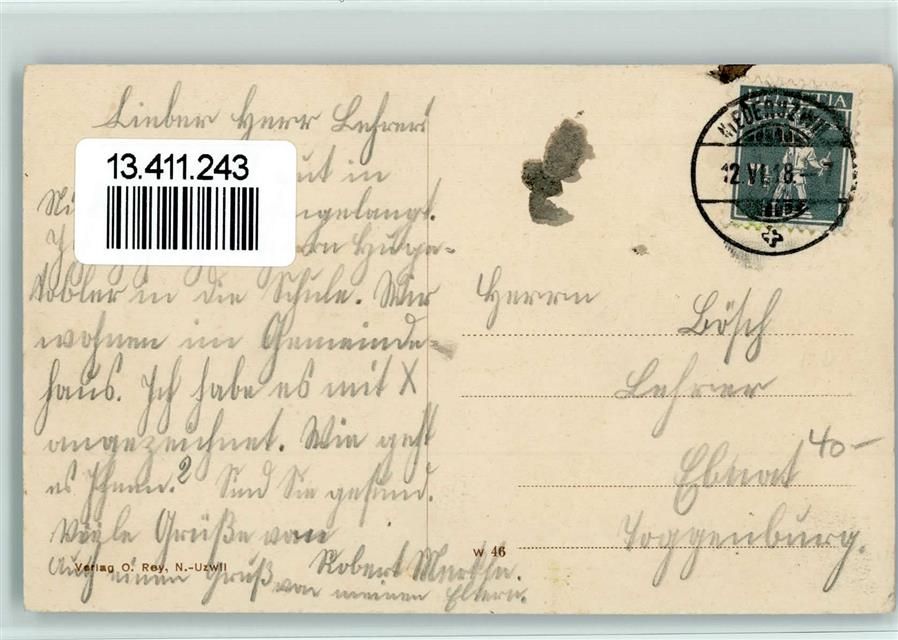 Lieber Herr Lehrer!
13.411.243
ut in
Ni ngelangt.
rn
tobler in die Schule. Wir
wohnen im Gemeinde-
haus. Ich habe es mit X
angezeichnet. Wie geht
es Ihnen? Sind Sie gesund.
Viele Grüße von
Robert
Auch einen Gruß
von meinen Eltern.
Verlag O. Rey, N.-Uzwil
W 46
HELVETIA
NIEDERUZWIL
12.VI.18.-7
Herrn
Bösch
Lehrer
Ebnat
40-
Toggenburg.